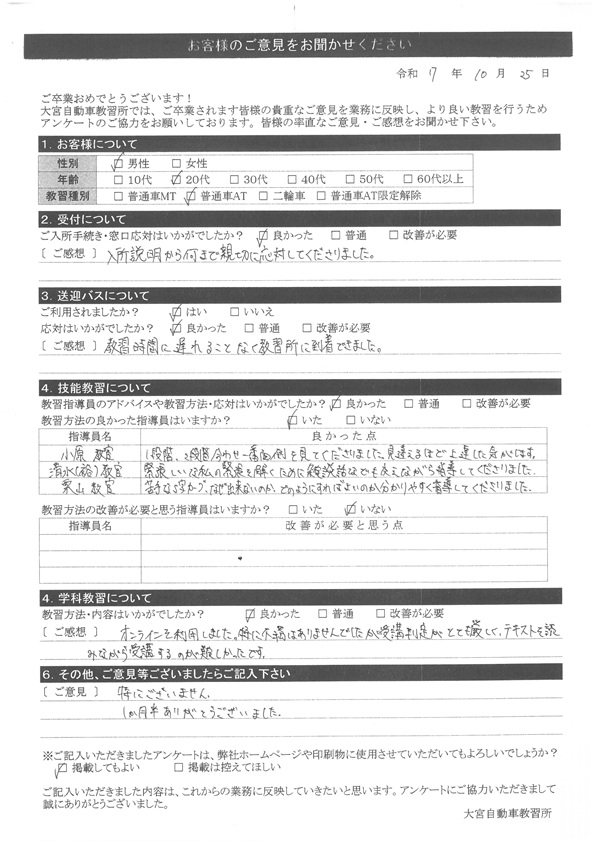 お客様のご意見をお聞かせください
令和 7 年 10 月 25 日
ご卒業おめでとうございます！
大宮自動車教習所では、ご卒業されます皆様の貴重なご意見を業務に反映し、より良い教習を行うため
アンケートのご協力をお願いしております。皆様の率直なご意見・ご感想をお聞かせ下さい。
1. お客様について
性別 ☑ 男性 □ 女性
年齢 □ 10代 ☑ 20代 □ 30代 □ 40代 □ 50代 □ 60代以上
教習種別 □ 普通車MT ☑ 普通車AT □ 二輪車 □ 普通車AT限定解除
2. 受付について
ご入所手続き・窓口応対はいかがでしたか？ ☑ 良かった □ 普通 □ 改善が必要
［ ご感想 ］ 入所説明から何まで親切に応対してくださりました。
3. 送迎バスについて
ご利用されましたか？ ☑ はい □ いいえ
応対はいかがでしたか？ ☑ 良かった □ 普通 □ 改善が必要
［ ご感想 ］ 教習時間に遅れることなく教習所に到着できました。
4. 技能教習について
教習指導員のアドバイスや教習方法・応対はいかがでしたか？ ☑ 良かった □ 普通 □ 改善が必要
教習方法の良かった指導員はいますか？ ☑ いた □ いない
指導員名 良かった点
小原 教官 1段階、2段階合わせ一番面倒を見てくださりました 見違えるほど上達した気がします。
清水(裕)教官 緊張しいな私の緊張を解くために雑談話なども交えながら指導してくださりました。
栗山 教官 苦手なS字カーブ、なぜ出来ないのか、どのようにすればよいのか分かりやすく指導してくださりました。
教習方法の改善が必要と思う指導員はいますか？ □ いた ☑ いない
指導員名 改善が必要と思う点
4. 学科教習について
教習方法・内容はいかがでしたか？ ☑ 良かった □ 普通 □ 改善が必要
［ ご感想 ］ オンラインを利用しました。特に不満はありませんでしたが受講判定がとても厳しく、テキストを読
みながら受講するのが難しかったです。
6. その他、ご意見等ございましたらご記入下さい
［ ご意見 ］ 特にございません。
1か月半ありがとうございました。
※ご記入いただきましたアンケートは、弊社ホームページや印刷物に使用させていただいてもよろしいでしょうか？
☑ 掲載してもよい □ 掲載は控えてほしい
ご記入いただきました内容は、これからの業務に反映していきたいと思います。アンケートにご協力いただきまして
誠にありがとうございました。
大宮自動車教習所